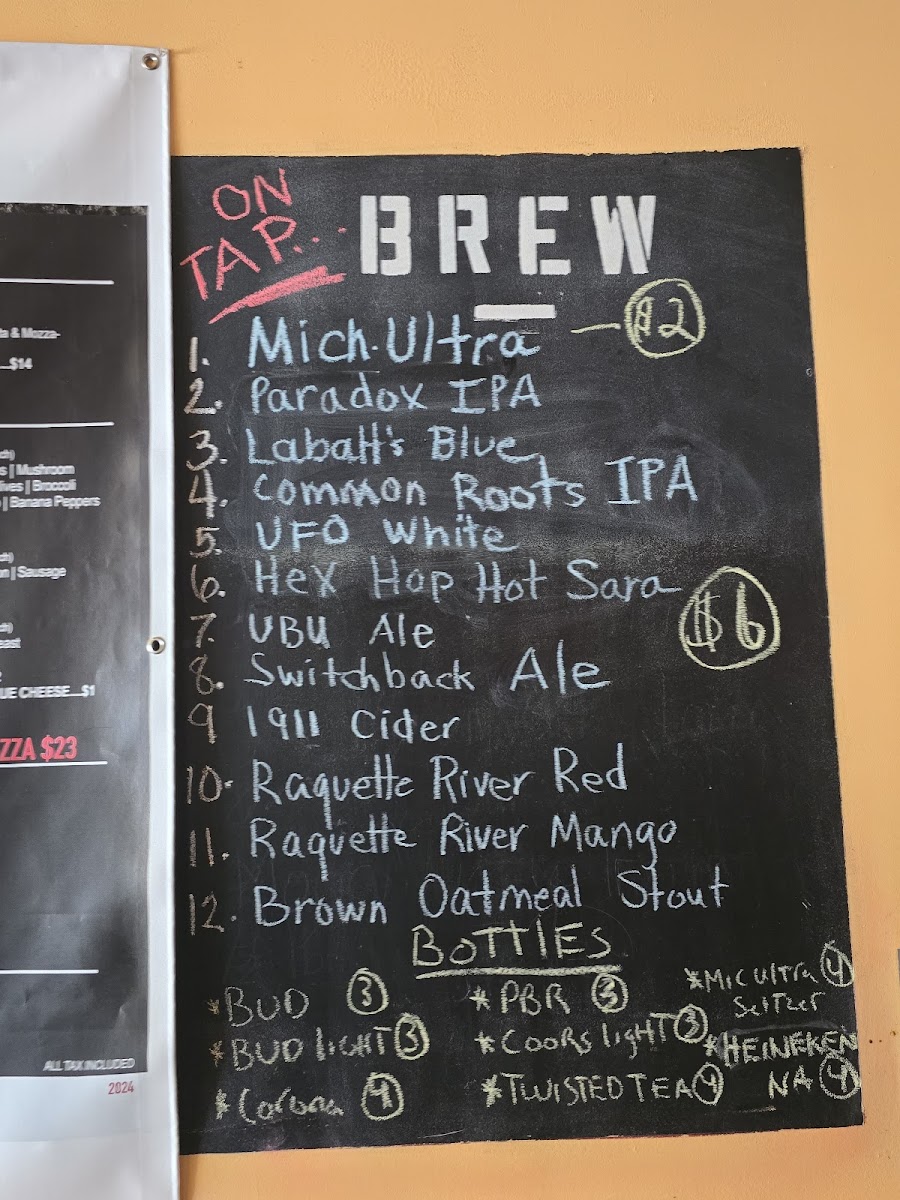 a & Mozza-
...$14
ch)
s | Mushroom
ives | Broccoli
| Banana Peppers
ch)
n | Sausage
ch)
east
UE CHEESE....$1
ZZA $23
ALL TAX INCLUDED
2024
ON
TAP...
BREW
1. Mich. Ultra — $2
2. Paradox IPA
3. Labatt's Blue
4. Common Roots IPA
5. UFO White
6. Hex Hop Hot Sara
$6
7. UBU Ale
8. Switchback Ale
9 1911 Cider
10. Raquette River Red
11. Raquette River Mango
12. Brown Oatmeal Stout
BOTTlES
*BUD 3
*BUD lIGHT 3
*Corona 4
*PBR 3
*COORS lighT 3
*TWISTED TEA 4
*MIC Ultra 4
Seltzer
*HEINEKEN
NA 4